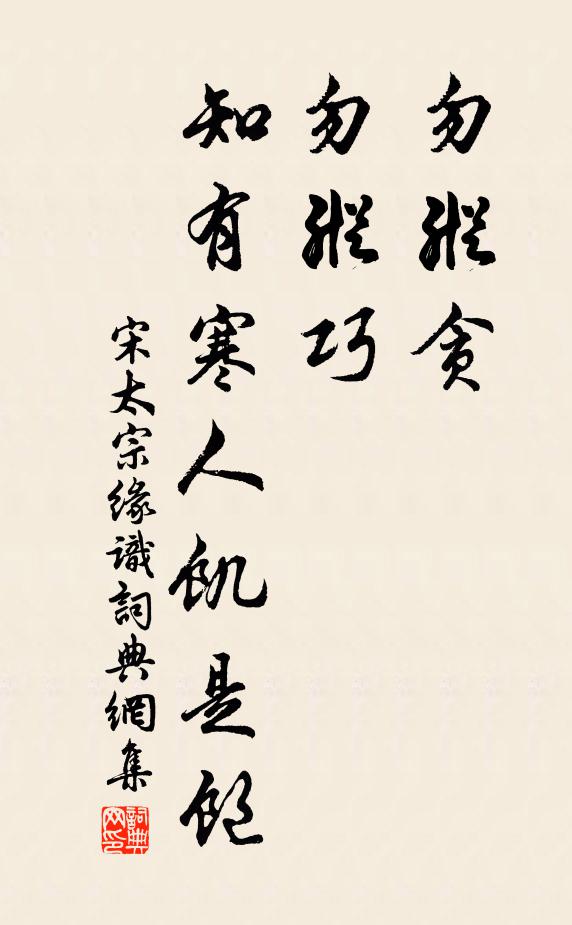 勿縱貪
勿縱巧
知有寒人飢是飽
宋太宗緣識詞典網集
詞典网印